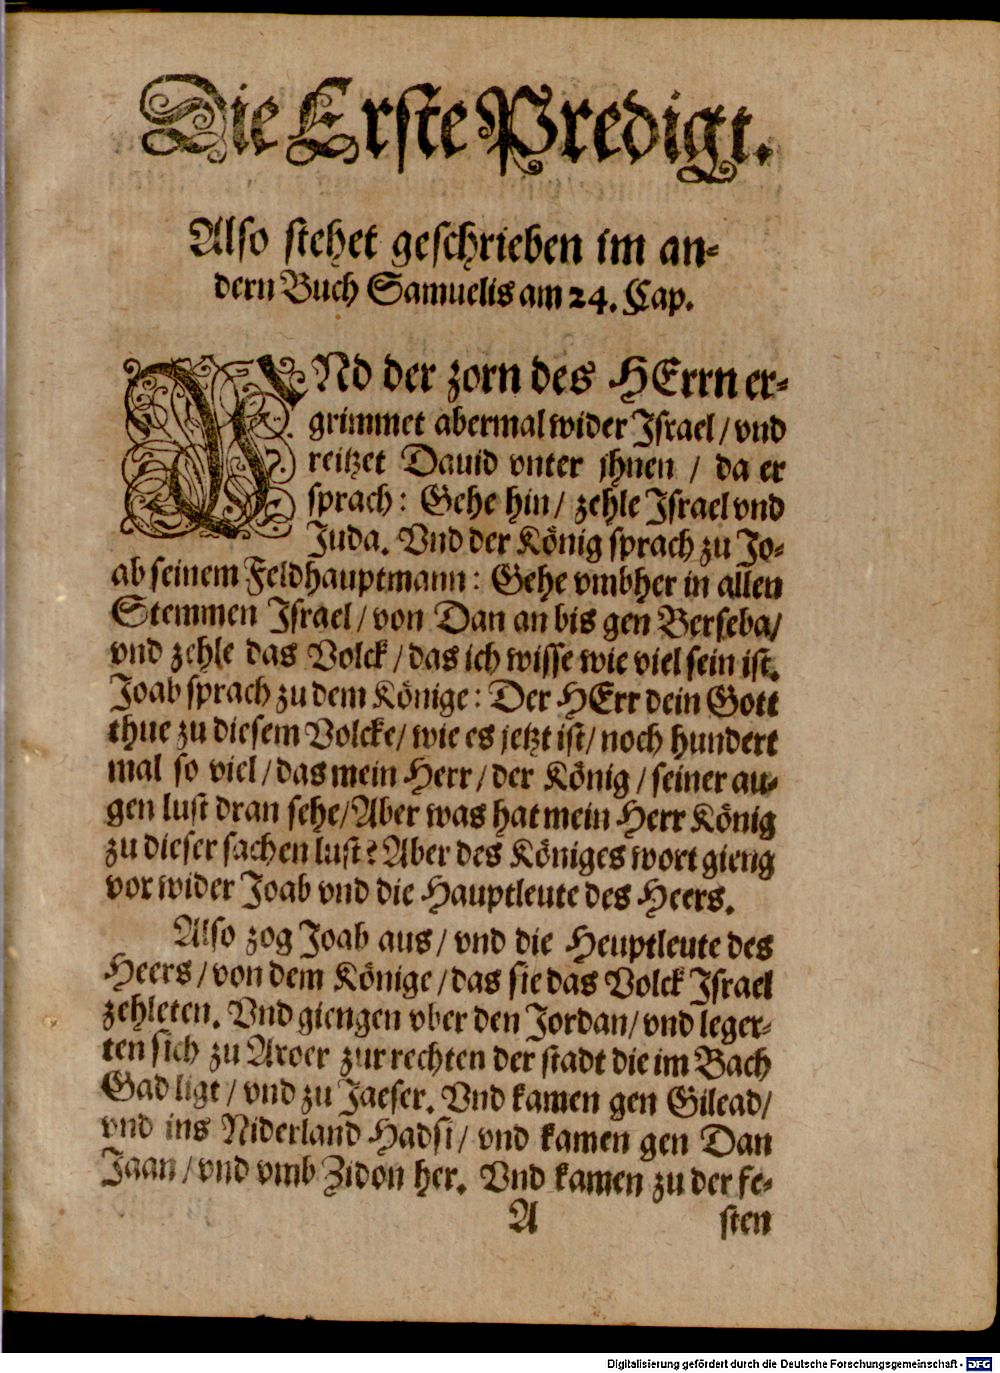 Die Erste Predigt.
Also stehet geschrieben im an-
dern Buch Samuelis am 24. Cap.
VNd der zorn des HErrn er-
grimmet abermal wider Israel / vnd
reitzet Dauid vnter jhnen / da er
sprach: Gehe hin / zehle Israel vnd
Juda. Vnd der König sprach zu Jo-
ab seinem Feldhauptmann: Gehe vmbher in allen
Stemmen Israel / von Dan an bis gen Berseba /
vnd zehle das Volck / das ich wisse wie viel sein ist.
Joab sprach zu dem Könige: Der HErr dein Gott
thue zu diesem Volcke / wie es jetzt ist / noch hundert
mal so viel / das mein Herr / der König / seiner au-
gen lust dran sehe / Aber was hat mein Herr König
zu dieser sachen lust? Aber des Königes wort gieng
vor wider Joab vnd die Hauptleute des Heers.
Also zog Joab aus / vnd die Heuptleute des
Heers / von dem Könige / das sie das Volck Israel
zehleten. Vnd giengen vber den Jordan / vnd leger-
ten sich zu Aroer zur rechten der stadt die im Bach
Gad ligt / vnd zu Jaeser. Vnd kamen gen Gilead /
vnd ins Niderland Hadsi / vnd kamen gen Dan
Jaan / vnd vmb Zidon her. Vnd kamen zu der fe-
A sten
Digitalisierung gefördert durch die Deutsche Forschungsgemeinschaft - DFG